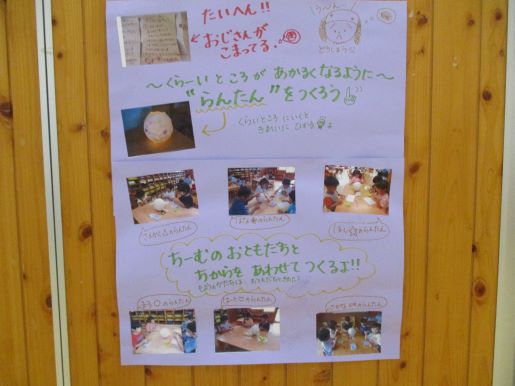 たいへん!!
おじさんが
こまってる。
う〜ん…
どうしよう
〜くらーい ところ が あかるくなるように〜
"らんたん" をつくろう
くらいところ にいくと
きれいに ひかる よ
さんかく△のらんたん
はな のらんたん
ほし☆のらんたん
ちーむの おともだちと
ちからを あわせて つくるよ!!
まる○のらんたん
はーと♡のらんたん
のらんたん